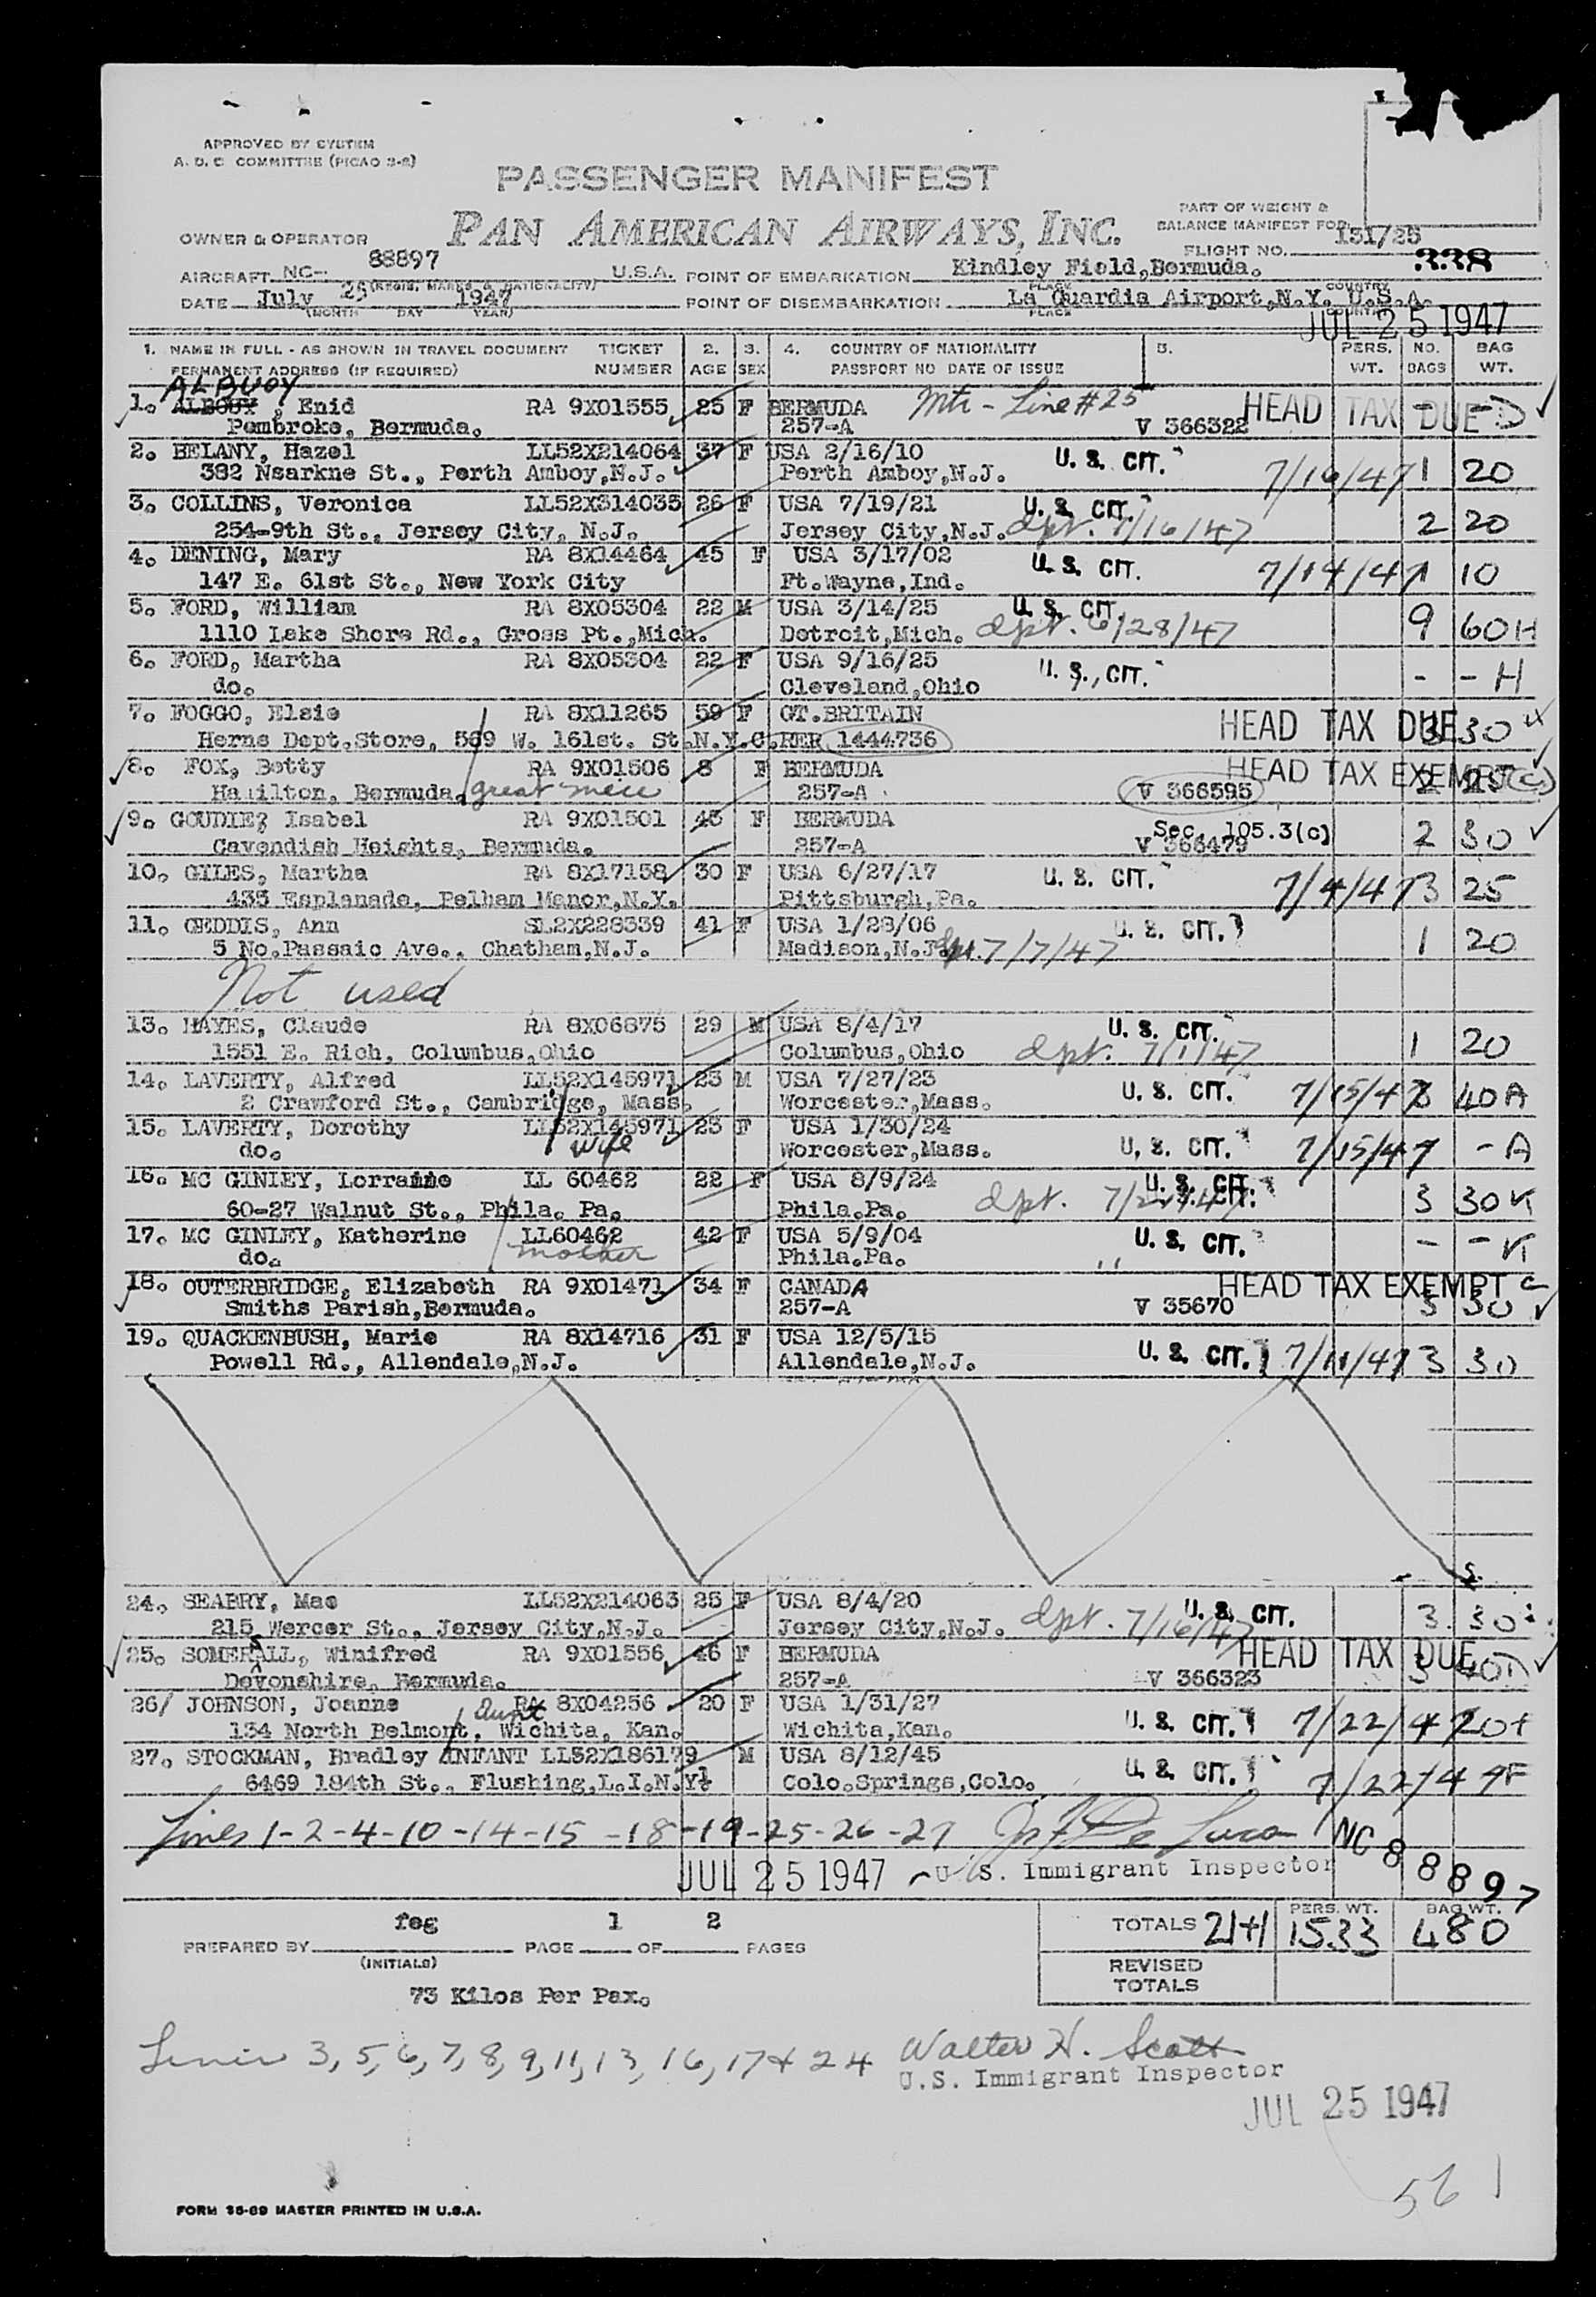 APPROVED BY SYSTEM
A. D. C. COMMITTEE (PICAO 3-2)
PASSENGER MANIFEST
PAN AMERICAN AIRWAYS, INC.
PART OF WEIGHT &
BALANCE MANIFEST FOR 131/25
OWNER & OPERATOR
FLIGHT NO. 338
AIRCRAFT NC- 88897 U.S.A. POINT OF EMBARKATION Kindley Field, Bermuda.
(REGIS. MARKS & NATIONALITY) PLACE COUNTRY
DATE July 25 1947 POINT OF DISEMBARKATION La Guardia Airport, N.Y. U.S.A.
(MONTH DAY YEAR) PLACE COUNTRY
JUL 25 1947
1. NAME IN FULL - AS SHOWN IN TRAVEL DOCUMENT TICKET 2. 3. 4. COUNTRY OF NATIONALITY 5. PERS. NO. BAG
PERMANENT ADDRESS (IF REQUIRED) NUMBER AGE SEX PASSPORT NO DATE OF ISSUE WT. BAGS WT.
ALBUOY
1. ALBOUY, Enid RA 9X01555 25 F BERMUDA Mtr - Line #25 HEAD TAX DUE - - D
Pembroke, Bermuda. 257-A V 366322
2. BELANY, Hazel LL52X214064 37 F USA 2/16/10 U. S. CIT. 7/16/47 1 20
382 Nsarkne St., Perth Amboy, N.J. Perth Amboy, N.J.
3. COLLINS, Veronica LL52X314035 26 F USA 7/19/21 U. S. CIT.
254-9th St., Jersey City, N.J. Jersey City, N.J. dpt. 7/16/47 2 20
4. DENING, Mary RA 8X14464 45 F USA 3/17/02 U. S. CIT. 7/14/47 1 10
147 E. 61st St., New York City Ft. Wayne, Ind.
5. FORD, William RA 8X05304 22 M USA 3/14/25 U. S. CIT.
1110 Lake Shore Rd., Gross Pt., Mich. Detroit, Mich. dpt. 6/28/47 9 60 H
6. FORD, Martha RA 8X05304 22 F USA 9/16/25 U. S. CIT.
do. Cleveland, Ohio - - H
7. FOGGO, Elsie RA 8X11265 59 F GT. BRITAIN HEAD TAX DUE 3 30
Herns Dept. Store, 569 W. 161st. St. N.Y.C. RER 1444736
8. FOX, Betty RA 9X01506 8 F BERMUDA HEAD TAX EXEMPT (c)
Hamilton, Bermuda. great niece 257-A V 366595 2 25
9. GOUDIE, Isabel RA 9X01501 45 F BERMUDA Sec. 105.3(c) 2 30
Cavendish Heights, Bermuda. 257-A V 366479
10. GILES, Martha RA 8X17158 30 F USA 6/27/17 U. S. CIT. 7/4/47 3 25
435 Esplanade, Pelham Manor, N.Y. Pittsburgh, Pa.
11. GEDDIS, Ann SL2X228339 41 F USA 1/28/06 U. S. CIT.
5 No. Passaic Ave., Chatham, N.J. Madison, N.J. dpt. 7/7/47 1 20
Not used
13. HAYES, Claude RA 8X06875 29 M USA 8/4/17 U. S. CIT.
1551 E. Rich, Columbus, Ohio Columbus, Ohio dpt. 7/1/47 1 20
14. LAVERTY, Alfred LL52X145971 23 M USA 7/27/23 U. S. CIT. 7/15/47 3 40 A
2 Crawford St., Cambridge, Mass. Worcester, Mass.
15. LAVERTY, Dorothy LL52X145971 23 F USA 1/30/24 U. S. CIT. 7/15/47 - A
do. wife Worcester, Mass.
16. MC GINLEY, Lorraine LL 60462 22 F USA 8/9/24 U. S. CIT.
60-27 Walnut St., Phila. Pa. Phila. Pa. dpt. 3 30 K
17. MC GINLEY, Katherine LL60462 42 F USA 5/9/04 U. S. CIT. - - K
do. mother Phila. Pa. ,,
18. OUTERBRIDGE, Elizabeth RA 9X01471 34 F CANADA HEAD TAX EXEMPT c
Smiths Parish, Bermuda. 257-A V 35670 3 30
19. QUACKENBUSH, Marie RA 8X14716 31 F USA 12/5/15 U. S. CIT. 7/11/47 3 30
Powell Rd., Allendale, N.J. Allendale, N.J.
24. SEABRY, Mae LL52X214063 25 F USA 8/4/20 U. S. CIT. 3 30
215 Wercer St., Jersey City, N.J. Jersey City, N.J. dpt. 7/16/47
25. SOMERSALL, Winifred RA 9X01556 46 F BERMUDA HEAD TAX DUE 3 40 D
Devonshire, Bermuda. 257-A V 366323
26/ JOHNSON, Joanne RA 8X04256 20 F USA 1/31/27 U. S. CIT. 7/22/47
134 North Belmont, Wichita, Kan. aunt Wichita, Kan.
27. STOCKMAN, Bradley INFANT LL52X186179 M USA 8/12/45 U. S. CIT. 7/22/47 F
6469 184th St., Flushing, L.I.N.Y. Colo. Springs, Colo.
Lines 1-2-4-10-14-15-18-19-25-26-27 De Luca NC 88897
JUL 25 1947 U.S. Immigrant Inspector
feg 1 2
PREPARED BY PAGE OF PAGES
(INITIALS)
TOTALS 21+1 PERS. WT. 1533 BAG WT. 480
REVISED TOTALS
73 Kilos Per Pax.
Lines 3, 5, 6, 7, 8, 9, 11, 13, 16, 17 & 24 Walter H. Scott
U.S. Immigrant Inspector
JUL 25 1947
561
FORM 35-69 MASTER PRINTED IN U.S.A.